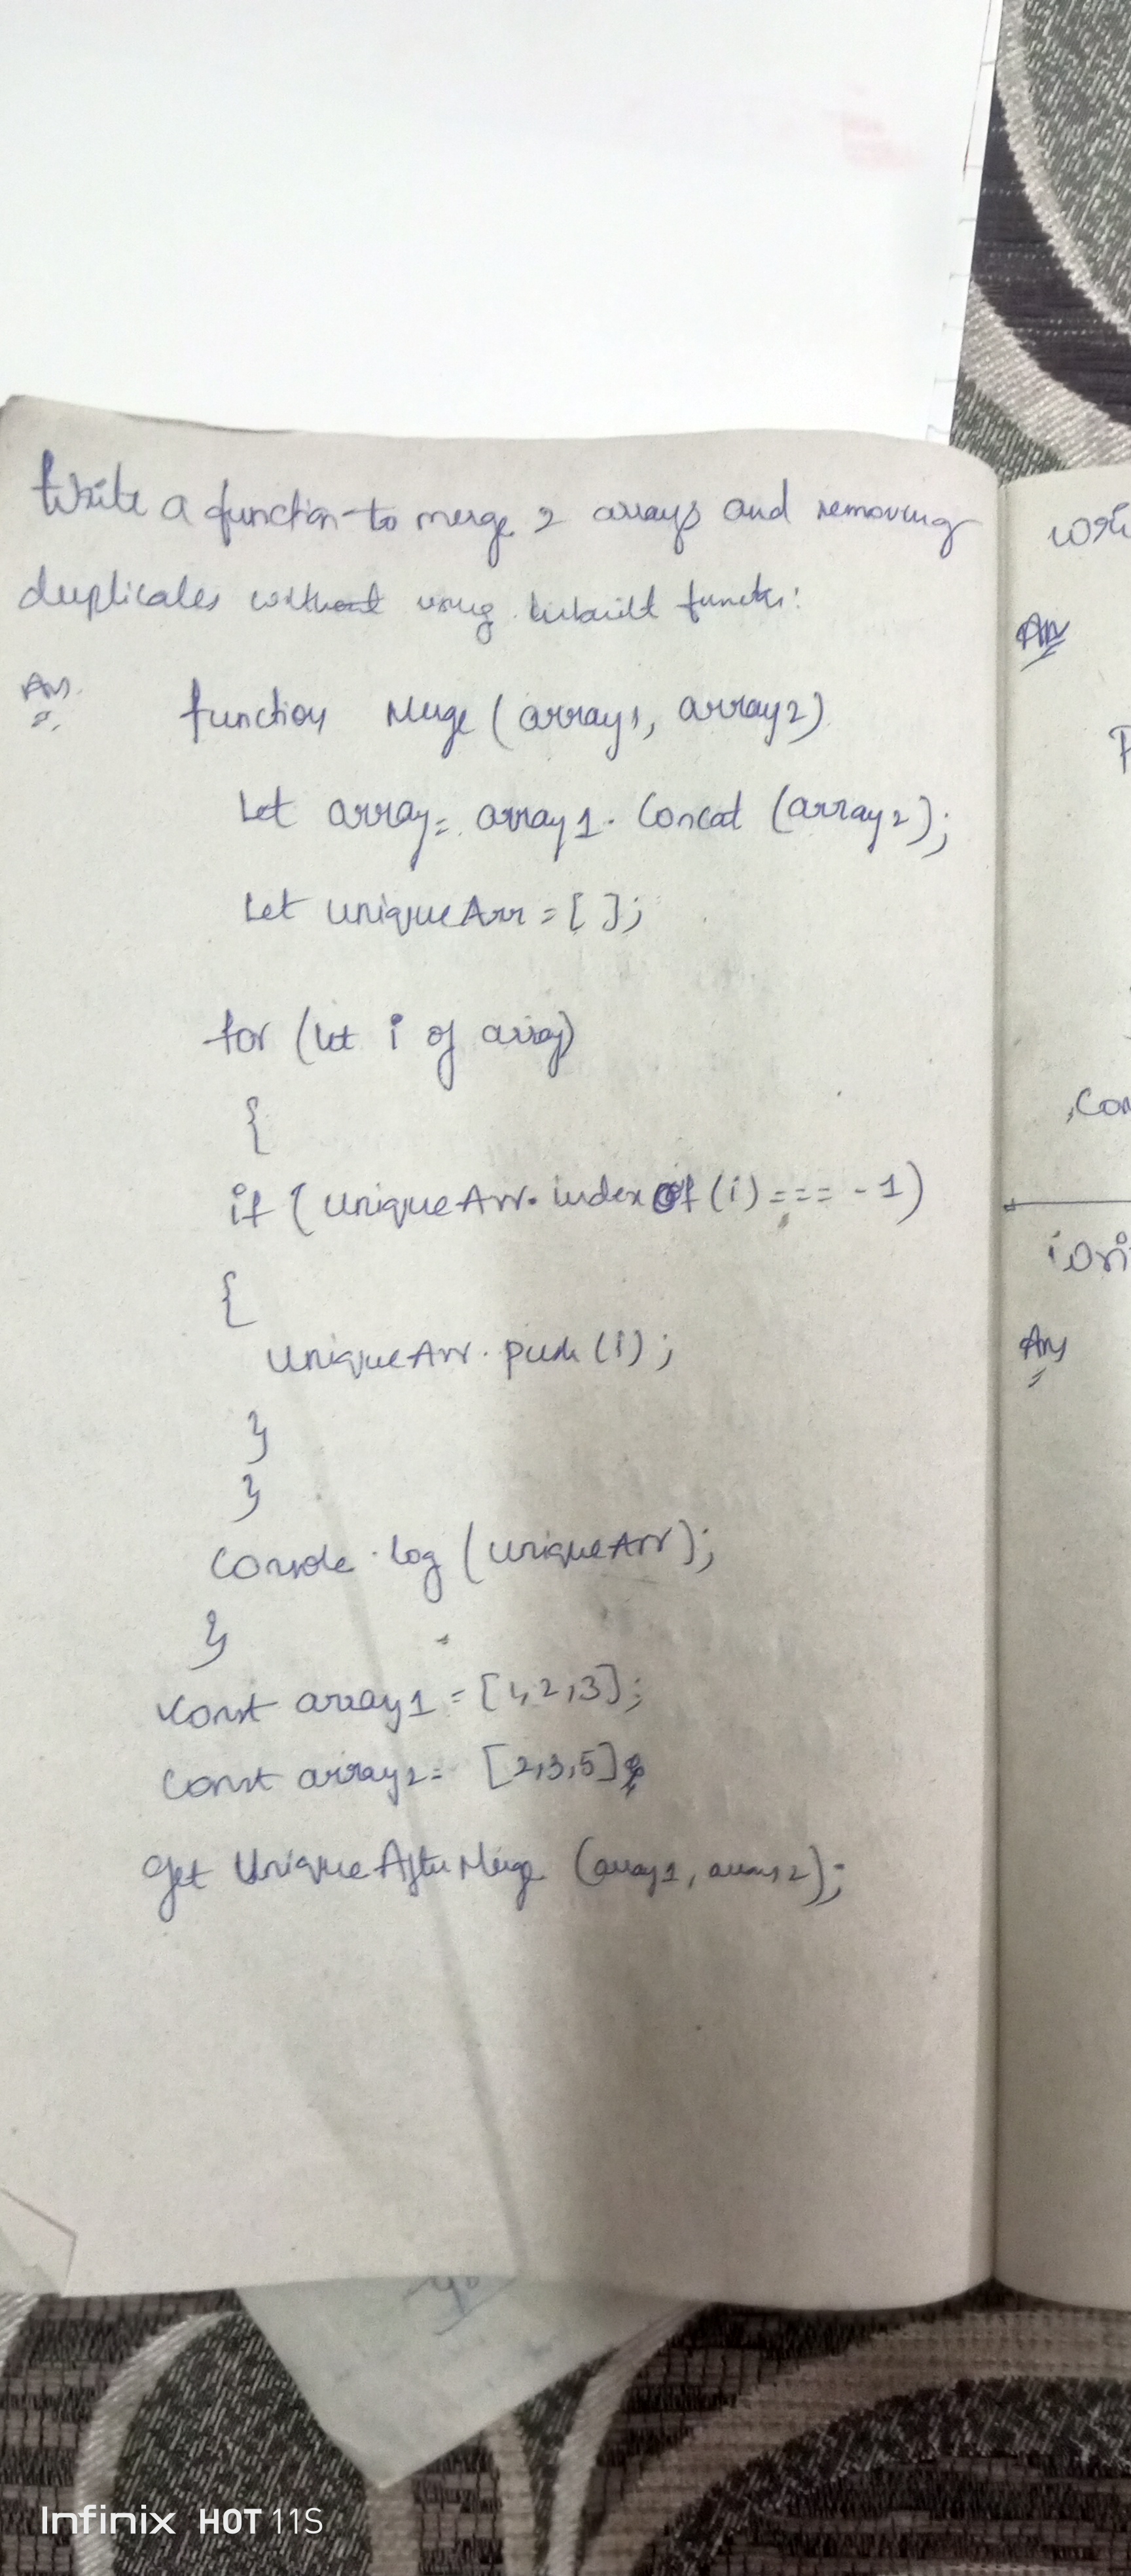 Write a function to merge 2 arrays and removing
duplicates without using inbuilt
Ans
function Merge (array1, array2)
Let array = array1. Concat (array2);
Let uniqueArr = [ ];
for (let i of array)
{
if (uniqueArr. indexOf (i) === -1)
{
uniqueArr. push (i);
}
}
Console. log (uniqueArr);
}
Const array1 = [1,2,3];
Const array2 = [2,3,5];
get Unique After Merge (array1, array2);
Ans
Con
Ans
Infinix HOT 11S